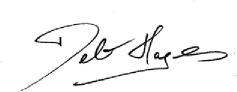 Deb Hayes